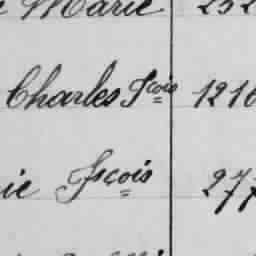 Marie 232
Charles Fçois 1216
ie Fçois 277